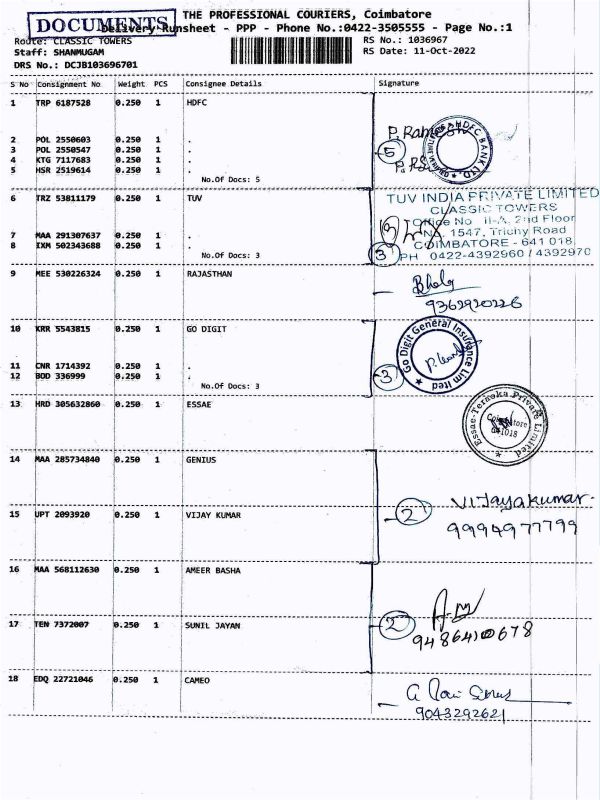 DOCUMENTS
THE PROFESSIONAL COURIERS, Coimbatore
Delivery Runsheet - PPP - Phone No.:0422-3505555 - Page No.:1
Route: CLASSIC TOWERS RS No.: 1036967
Staff: SHANMUGAM RS Date: 11-Oct-2022
DRS No.: DCJB103696701
S No Consignment No Weight PCS Consignee Details Signature
1 TRP 6187528 0.250 1 HDFC
P. Ramesh
HDFC BANK LTD
2 POL 2550603 0.250 1 .
3 POL 2550547 0.250 1 .
5
4 KTG 7117683 0.250 1 .
5 HSR 2519614 0.250 1 .
No.Of Docs: 5
6 TRZ 53811179 0.250 1 TUV
TUV INDIA PRIVATE LIMITED
CLASSIC TOWERS
Office No II-A, 2nd Floor
No. 1547, Trichy Road
COIMBATORE - 641 018
PH 0422-4392960 / 4392970
7 MAA 291307637 0.250 1 .
8 IXM 502343688 0.250 1 .
No.Of Docs: 3
3
9 MEE 530226324 0.250 1 RAJASTHAN
9362920226
10 KRR 5543815 0.250 1 GO DIGIT
Go Digit General Insurance Limited
11 CNR 1714392 0.250 1 .
12 BOD 336999 0.250 1 .
3
No.Of Docs: 3
13 HRD 305632860 0.250 1 ESSAE
Essae-Teraoka Private Limited
Coimbatore
641018
14 MAA 285734840 0.250 1 GENIUS
2 Vijayakumar
15 UPT 2093920 0.250 1 VIJAY KUMAR
9994977799
16 MAA 568112630 0.250 1 AMEER BASHA
17 TEN 7372007 0.250 1 SUNIL JAYAN
2
9486410678
18 EDQ 22721046 0.250 1 CAMEO
9043292621